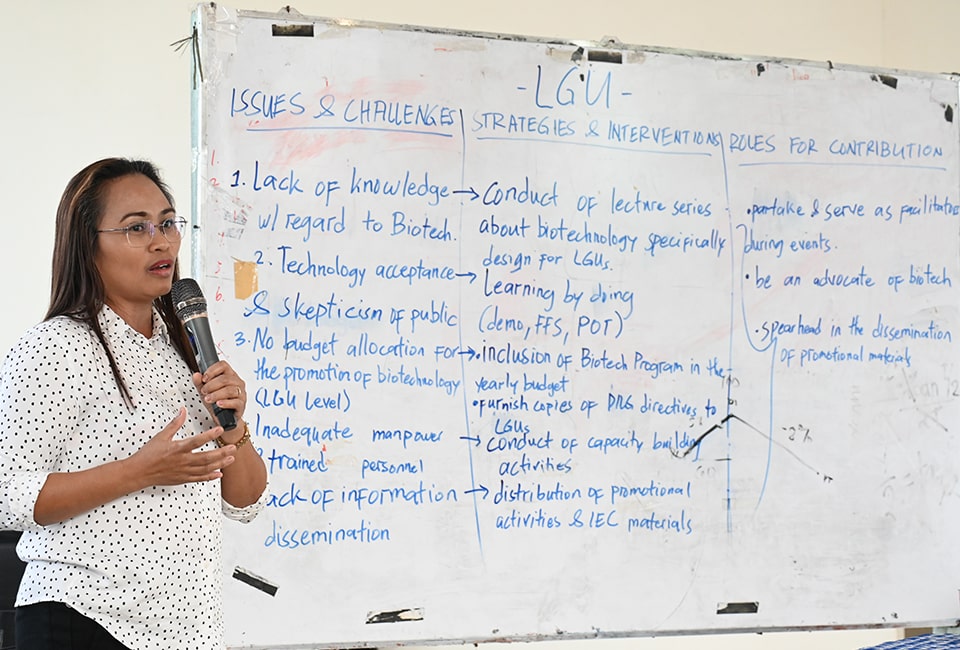 -LGU-
ISSUES & CHALLENGES
1. Lack of knowledge
w/ regard to Biotech.
2. Technology acceptance
& skepticism of public
3. No budget allocation for
the promotion of biotechnology
(LGU Level)
Inadequate manpower
trained personnel
ack of information
dissemination
STRATEGIES & INTERVENTIONS
→ Conduct of lecture series
about biotechnology specifically
design for LGUs.
→ Learning by doing
(demo, FFS, POT)
→ • inclusion of Biotech Program in the
yearly budget
• furnish copies of DILG directives to
LGUs
→ conduct of capacity building
activities
→ distribution of promotional
activities & IEC materials
ROLES FOR CONTRIBUTION
• partake & serve as facilitators
during events.
• be an advocate of biotech
• spearhead in the dissemination
of promotional materials
-2%